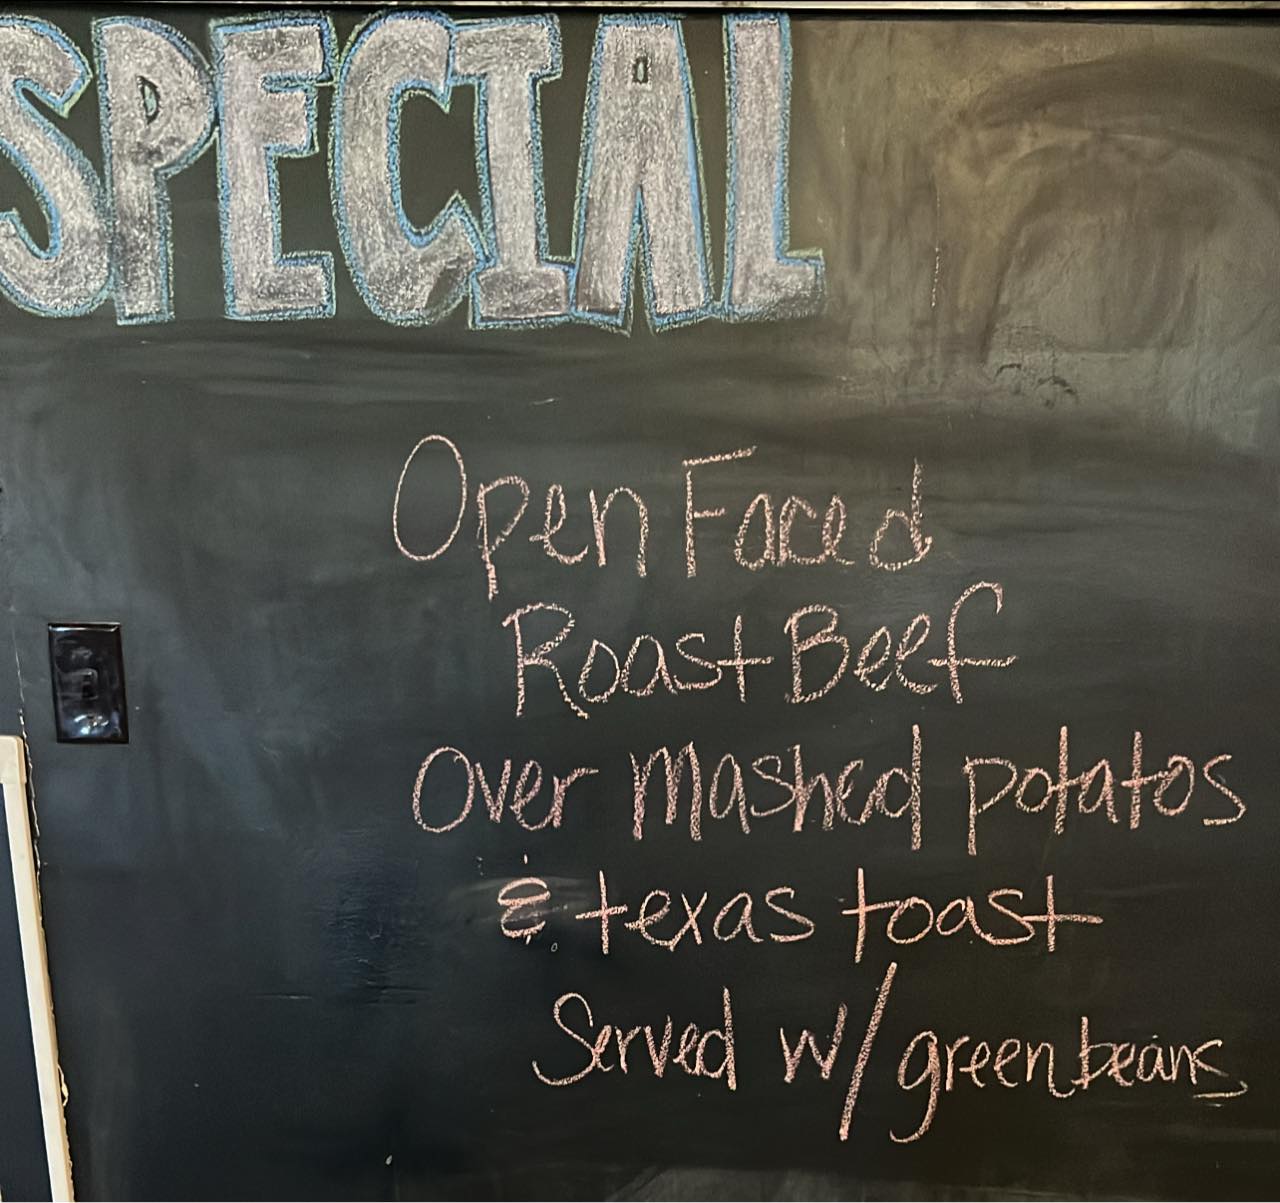 SPECIAL
Open Faced
Roast Beef
Over mashed potatos
& texas toast
Served w/ green beans